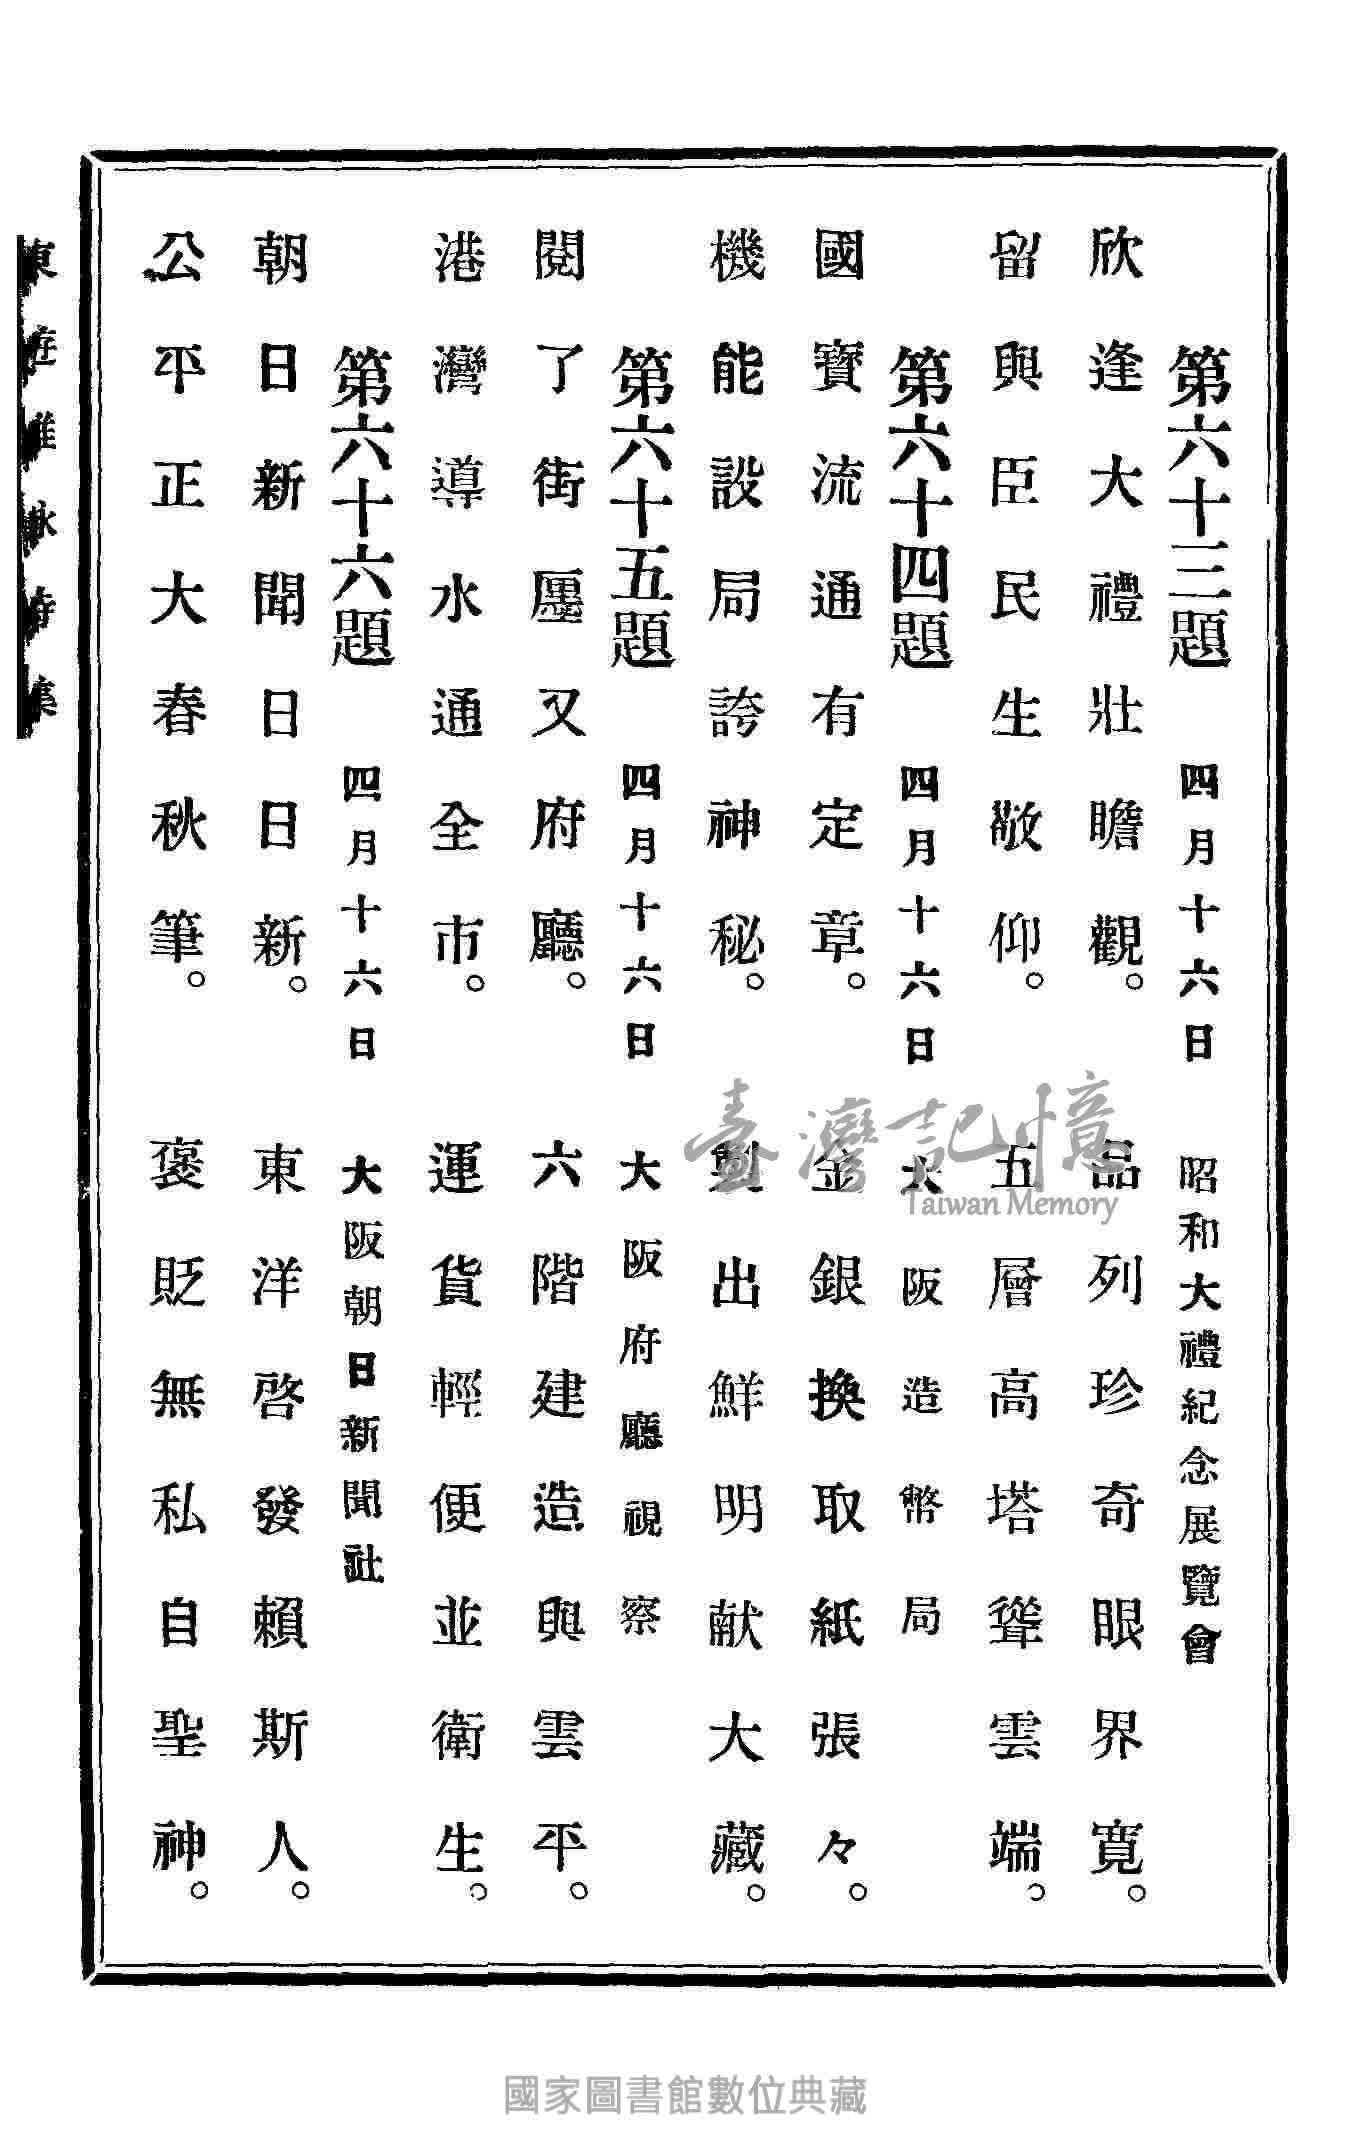 第六十三題 四月十六日 昭和大禮紀念展覽會
欣逢大禮壯瞻觀。 品列珍奇眼界寬。
留與臣民生敬仰。 五層高塔聳雲端。
第六十四題 四月十六日 大阪造幣局
國寶流通有定章。 金銀換取紙張々。
機能設局誇神秘。 製出鮮明献大藏。
第六十五題 四月十六日 大阪府廳視察
閱了街廛又府廳。 六階建造與雲平。
港灣導水通全市。 運貨輕便並衛生。
第六十六題 四月十六日 大阪朝日新聞社
朝日新聞日日新。 東洋啓發賴斯人。
公平正大春秋筆。 褒貶無私自聖神。
東遊雅詠詩集
臺灣記憶
Taiwan Memory
國家圖書館數位典藏